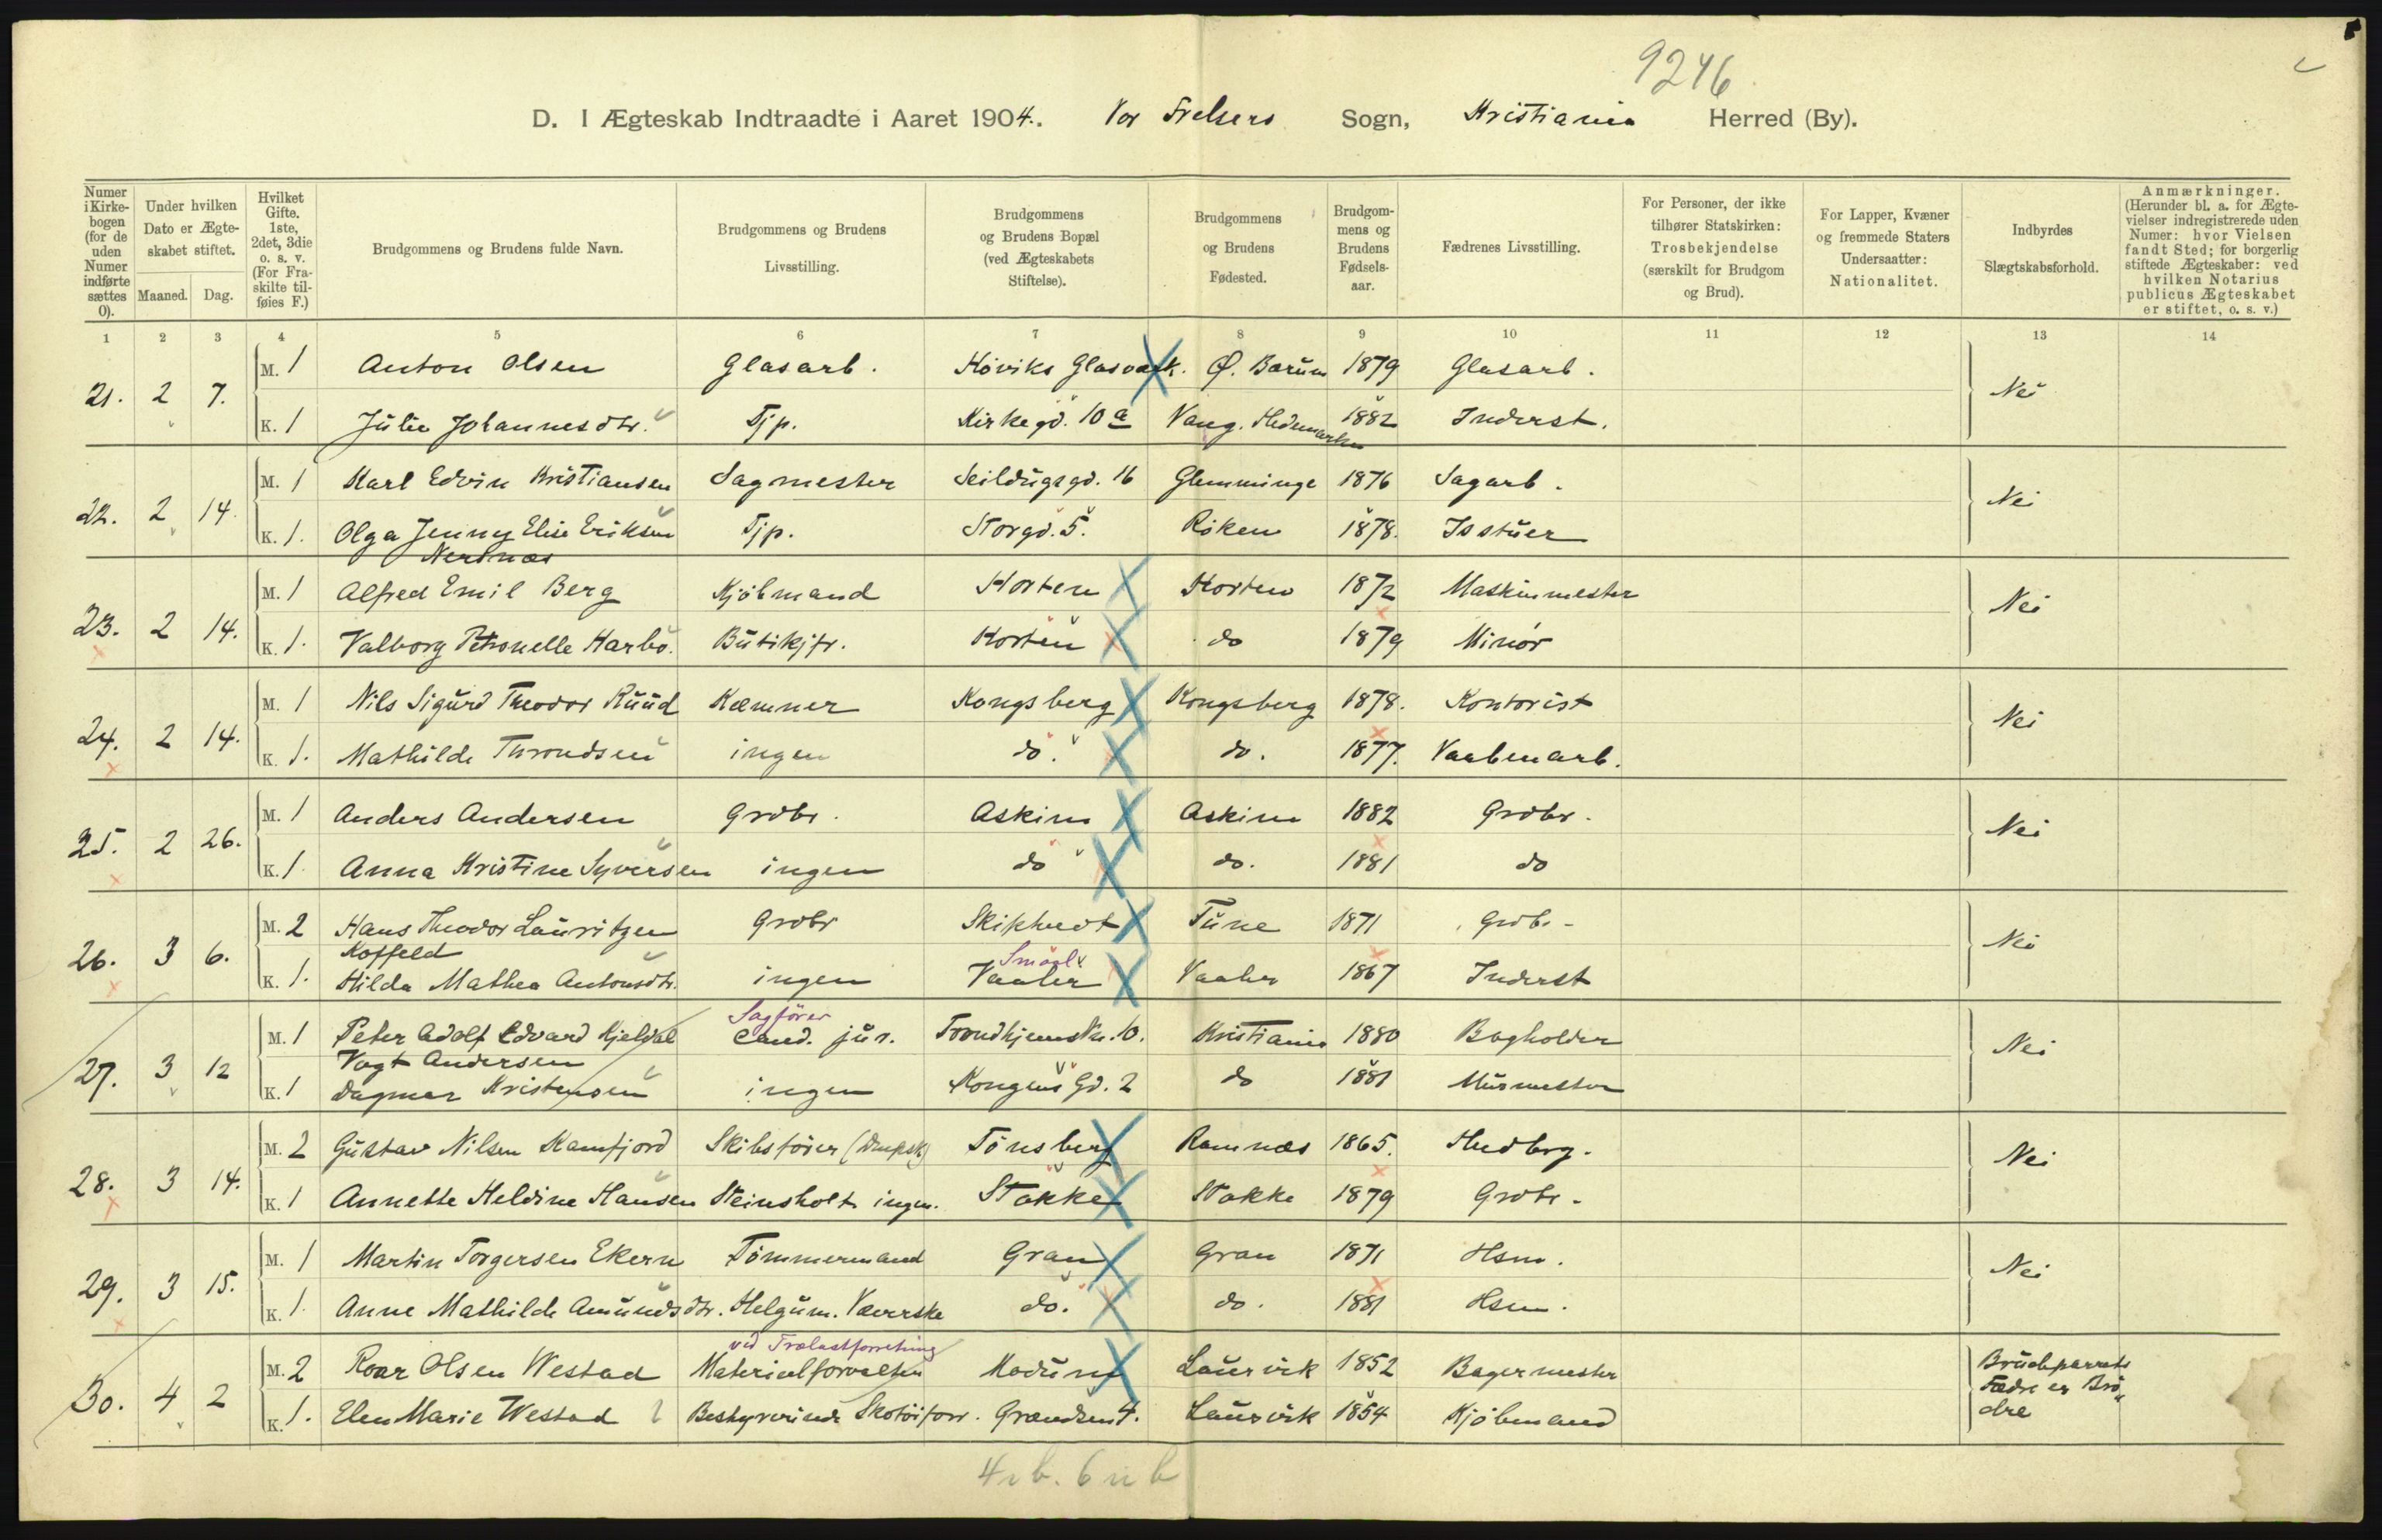 9246
D. I Ægteskab Indtraadte i Aaret 1904. Vor Frelsers Sogn, Kristiania Herred (By).
Numer i Kirkebogen (for de uden Numer indførte sættes 0). Under hvilken Dato er Ægteskabet stiftet. Maaned. Dag. Hvilket Gifte. 1ste, 2det, 3die o. s. v. (For Fraskilte tilføies F.) Brudgommens og Brudens fulde Navn. Brudgommens og Brudens Livsstilling. Brudgommens og Brudens Bopæl (ved Ægteskabets Stiftelse). Brudgommens og Brudens Fødested. Brudgommens og Brudens Fødselsaar. Fædrenes Livsstilling. For Personer, der ikke tilhører Statskirken: Trosbekjendelse (særskilt for Brudgom og Brud). For Lapper, Kvæner og fremmede Staters Undersaatter: Nationalitet. Indbyrdes Slægtskabsforhold. Anmærkninger. (Herunder bl. a. for Ægtevielser indregistrerede uden Numer: hvor Vielsen fandt Sted; for borgerlig stiftede Ægteskaber: ved hvilken Notarius publicus Ægteskabet er stiftet, o. s. v.)
1 2 3 4 5 6 7 8 9 10 11 12 13 14
21. 2 7. M. 1 Anton Olsen Glasarb. Høviks Glasværk. Ø. Bærum 1879 Glasarb. Nei
K. 1 Julie Johannesdtr. Tjp. Kirkegd. 10a Vang. Hedemarken 1882 Inderst.
22. 2 14. M. 1 Karl Edvin Kristiansen Sagmester Seildugsgd. 16 Glemminge 1876 Sagarb. Nei
K. 1. Olga Jenny Elise Eriksen Tjp. Storgd. 5. Røken 1878. Isstuer
Nersnæs
23. 2 14. M. 1 Alfred Emil Berg Kjøbmand Horten Horten 1872 Maskinmester Nei
K. 1. Valborg Petronelle Harbo. Butikjfr. Horten do 1879 Minør
24. 2 14. M. 1 Nils Sigurd Theodor Ruud Kæmner Kongsberg Kongsberg 1878. Kontorist Nei
K. 1. Mathilde Throndsen ingen do. do. 1877. Vaabenarb.
25. 2 26. M. 1 Anders Andersen Grdbr. Askim Askim 1882 Grdbr. Nei
K. 1 Anna Kristine Syversen ingen do do. 1881 do
26. 3 6. M. 2 Hans Theodor Lauritzen Grdbr Skiptvedt Tune 1871 Grdbr. Nei
Koffeld Smaal
K. 1. Hilda Mathea Antonsdtr. ingen Vaaler Vaaler 1867 Inderst
Sagfører
27. 3 12 M. 1 Peter Adolf Edvard Kjeldal cand. jur. Trondhjemsvn. 10. Kristiania 1880 Bogholder Nei
Vogt Andersen
K. 1 Dagmar Kristensen ingen Kongens Gd. 2 do 1881 Murmester
28. 3 14. M. 2 Gustav Nilsen Kamfjord Skibsfører (Dmpsk) Tønsberg Ramnæs 1865. Hudbrg. Nei
K. 1 Annette Heldine Hansen Steinsholt ingen. Stokke Stokke 1879 Grdbr.
29. 3 15. M. 1 Martin Torgersen Ekern Tømmermand Gran Gran 1871 Hsm. Nei
K. 1. Anne Mathilde Amundsdtr. Helgum. Væverske do. do. 1881 Hsm.
ved Trælastforretning
30. 4 2 M. 2 Roar Olsen Westad Materialforvalter Modum Laurvik 1852 Bagermester Brudeparrets
Fædre er Brø-
K. 1. Elen Marie Westad Bestyrerinde Skotøiforr. Grændsen 4. Laurvik 1854 Kjøbmand dre